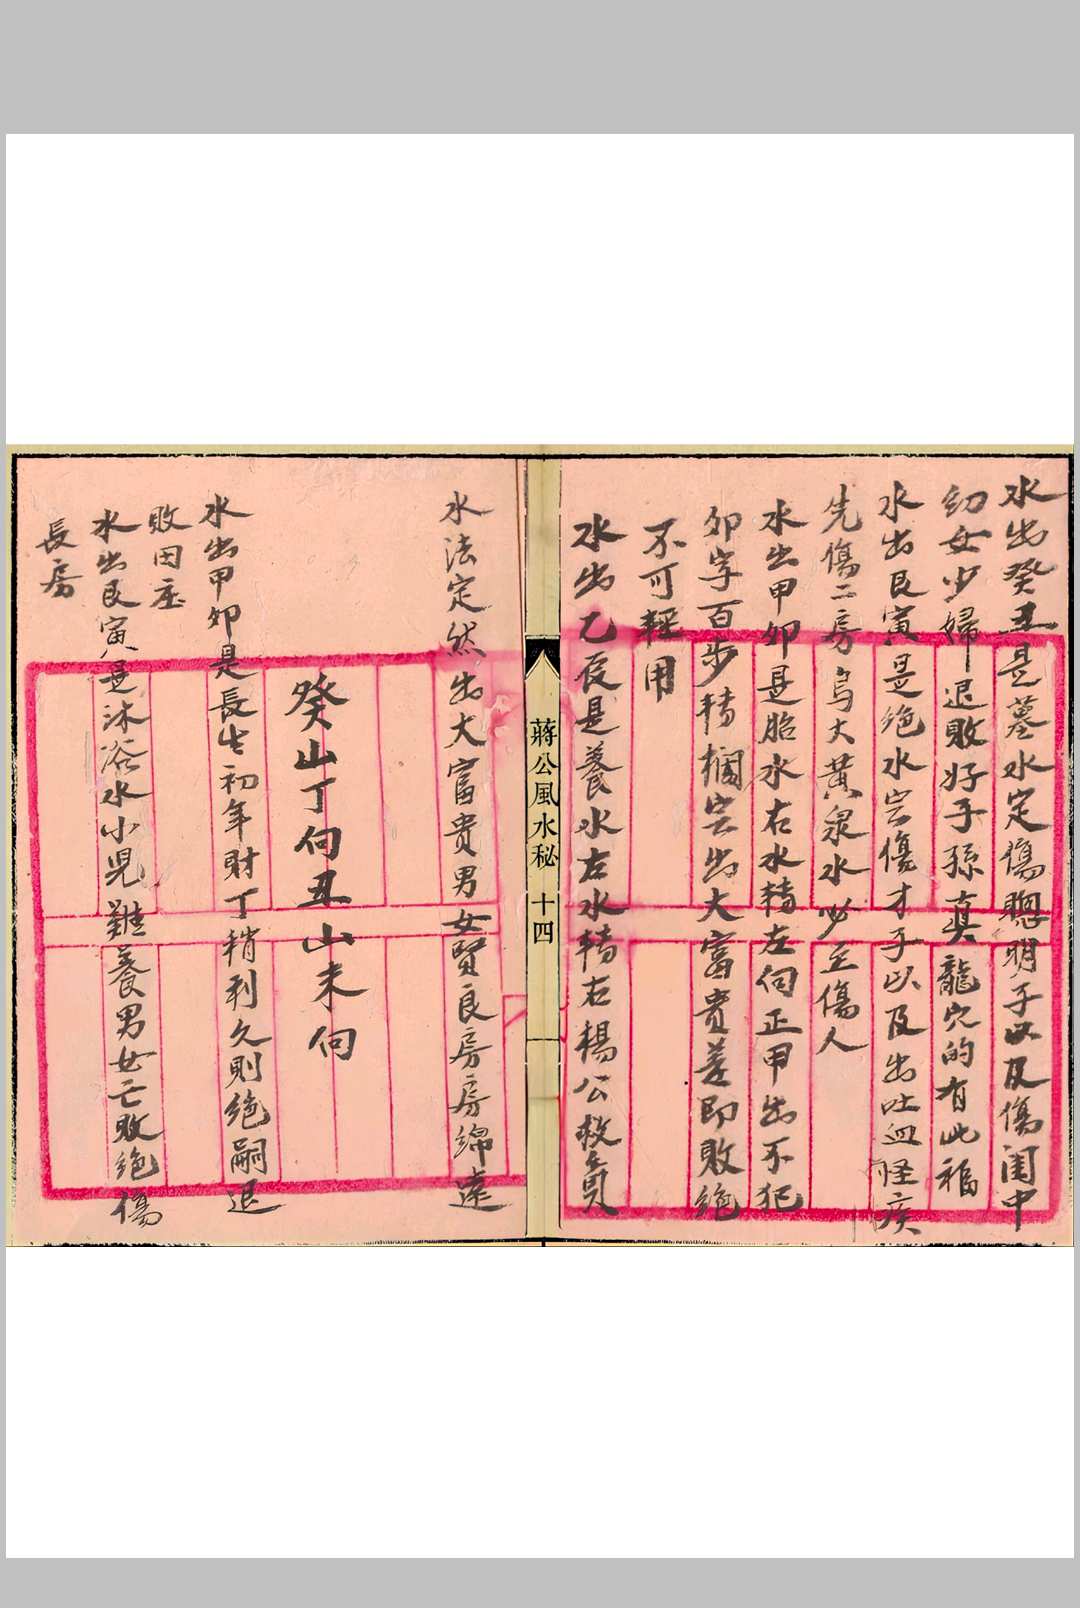 水出癸丑是墓水定傷聰明子以及傷閨中
幼女少婦退敗好子孫真龍穴的有此福
水出艮寅是絕水定傷才子以及出吐血怪疾
先傷二房烏大黃泉水必主傷人
水出甲卯是胎水右水轉左向正甲出不犯
卯字百步轉欄定出大富貴差即敗絕
不可輕用
水出乙辰是養水左水轉右楊公救貧
蔣公風水秘 十四
水法定然出大富貴男女賢良房房綿遠
癸山丁向丑山未向
水出甲卯是長生初年財丁稍利久則絕嗣退
敗田庄
水出艮寅是沐浴水小兒難養男女亡敗絕傷
長房